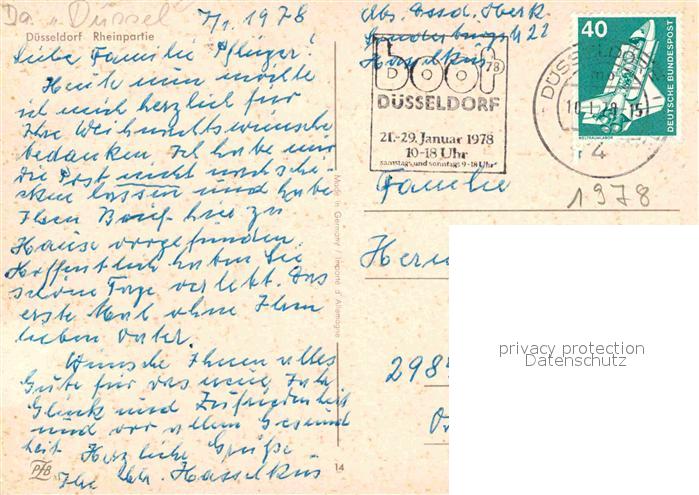 Da. "Düssel"
Düsseldorf Rheinpartie
7/1. 1978
Liebe Familie Pflüger!
Heute nun möchte
ich mich herzlich für
Ihre Weihnachtswünsche
bedanken. Ich habe mir
die Post nicht nachschi-
cken lassen und habe
Ihren Brief hier zu
Hause vorgefunden.
Hoffentlich haben Sie
schöne Tage verlebt. Das
erste Mal ohne Ihren
lieben Vater.
Wünsche Ihnen alles
Gute für das neue Jahr
Glück und Zufriedenheit
und vor allem Gesund
heit. Herzliche Grüße
Ihre Chr. Hasselkus
PfB
14
Made in Germany / Importé d'Allemagne
Abs. Dssd.
22
Hasselkus
boot 78
DÜSSELDORF
21.-29. Januar 1978
10-18 Uhr
samstags und sonntags 9-18 Uhr
DÜSSELDORF
10.-1.78-15
4
40
DEUTSCHE BUNDESPOST
WELTRAUMLABOR
1978
Familie
298
privacy protection
Datenschutz